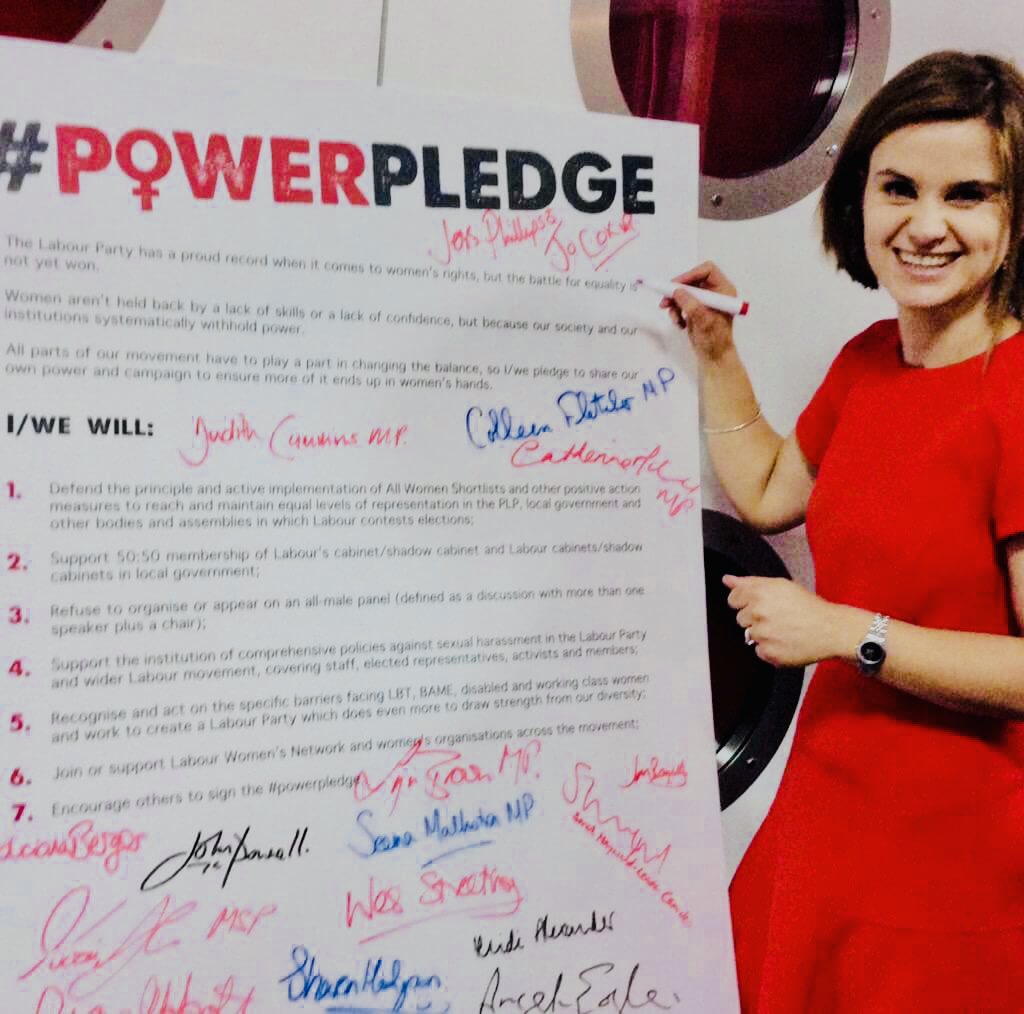 #POWERPLEDGE
Jess Phillips
Jo Cox MP
The Labour Party has a proud record when it comes to women's rights, but the battle for equality is
not yet won.
Women aren't held back by a lack of skills or a lack of confidence, but because our society and our
institutions systematically withhold power.
All parts of our movement have to play a part in changing the balance, so I/we pledge to share our
own power and campaign to ensure more of it ends up in women's hands.
I/WE WILL:
Judith Cummins MP.
Colleen Fletcher MP
Catherine
MP
1. Defend the principle and active implementation of All Women Shortlists and other positive action
measures to reach and maintain equal levels of representation in the PLP, local government and
other bodies and assemblies in which Labour contests elections;
2. Support 50:50 membership of Labour's cabinet/shadow cabinet and Labour cabinets/shadow
cabinets in local government;
3. Refuse to organise or appear on an all-male panel (defined as a discussion with more than one
speaker plus a chair);
4. Support the institution of comprehensive policies against sexual harassment in the Labour Party
and wider Labour movement, covering staff, elected representatives, activists and members;
5. Recognise and act on the specific barriers facing LBT, BAME, disabled and working class women
and work to create a Labour Party which does even more to draw strength from our diversity;
6. Join or support Labour Women's Network and women's organisations across the movement;
7. Encourage others to sign the #powerpledge
MP.
Luciana Berger
John McDonnell.
Seema Malhotra MP
Sarah Hayward
MSP
Wes Streeting
Heidi Alexander
Sharon Hodgson
Angela Eagle.